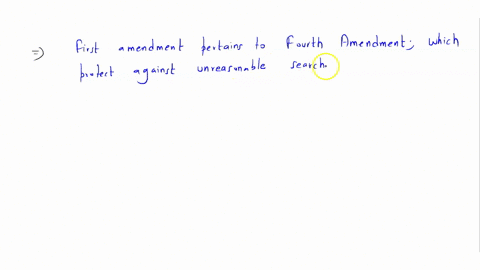 ⇒ First amendment pertains to Fourth Amendment; which
protect against unreasonable search.